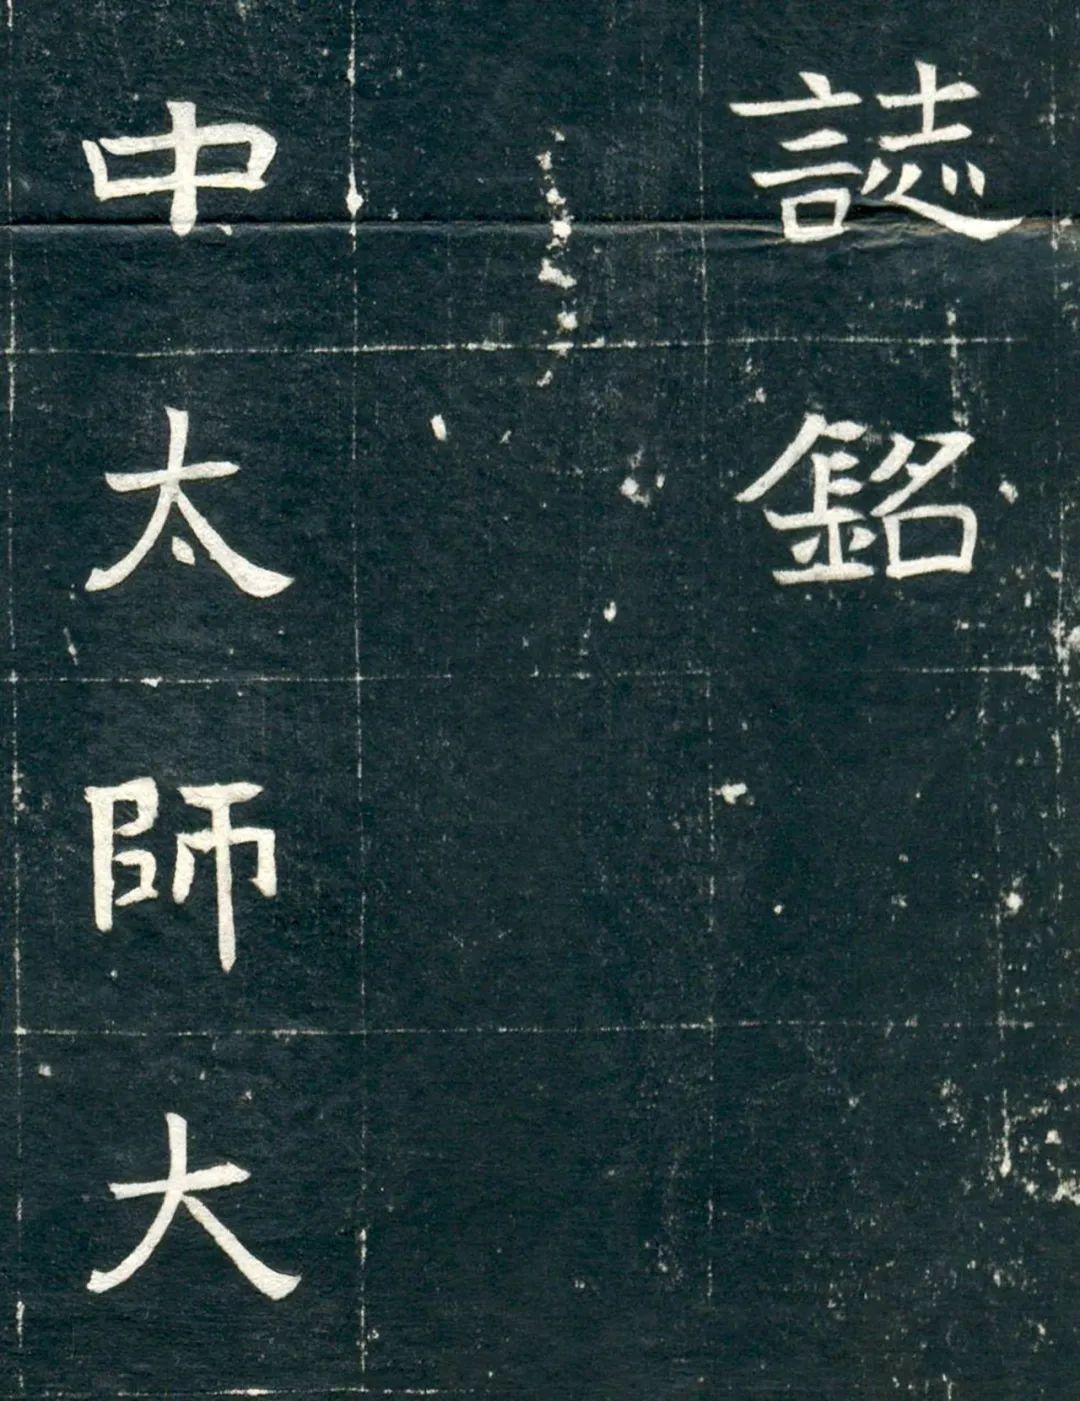 誌銘
中太師大